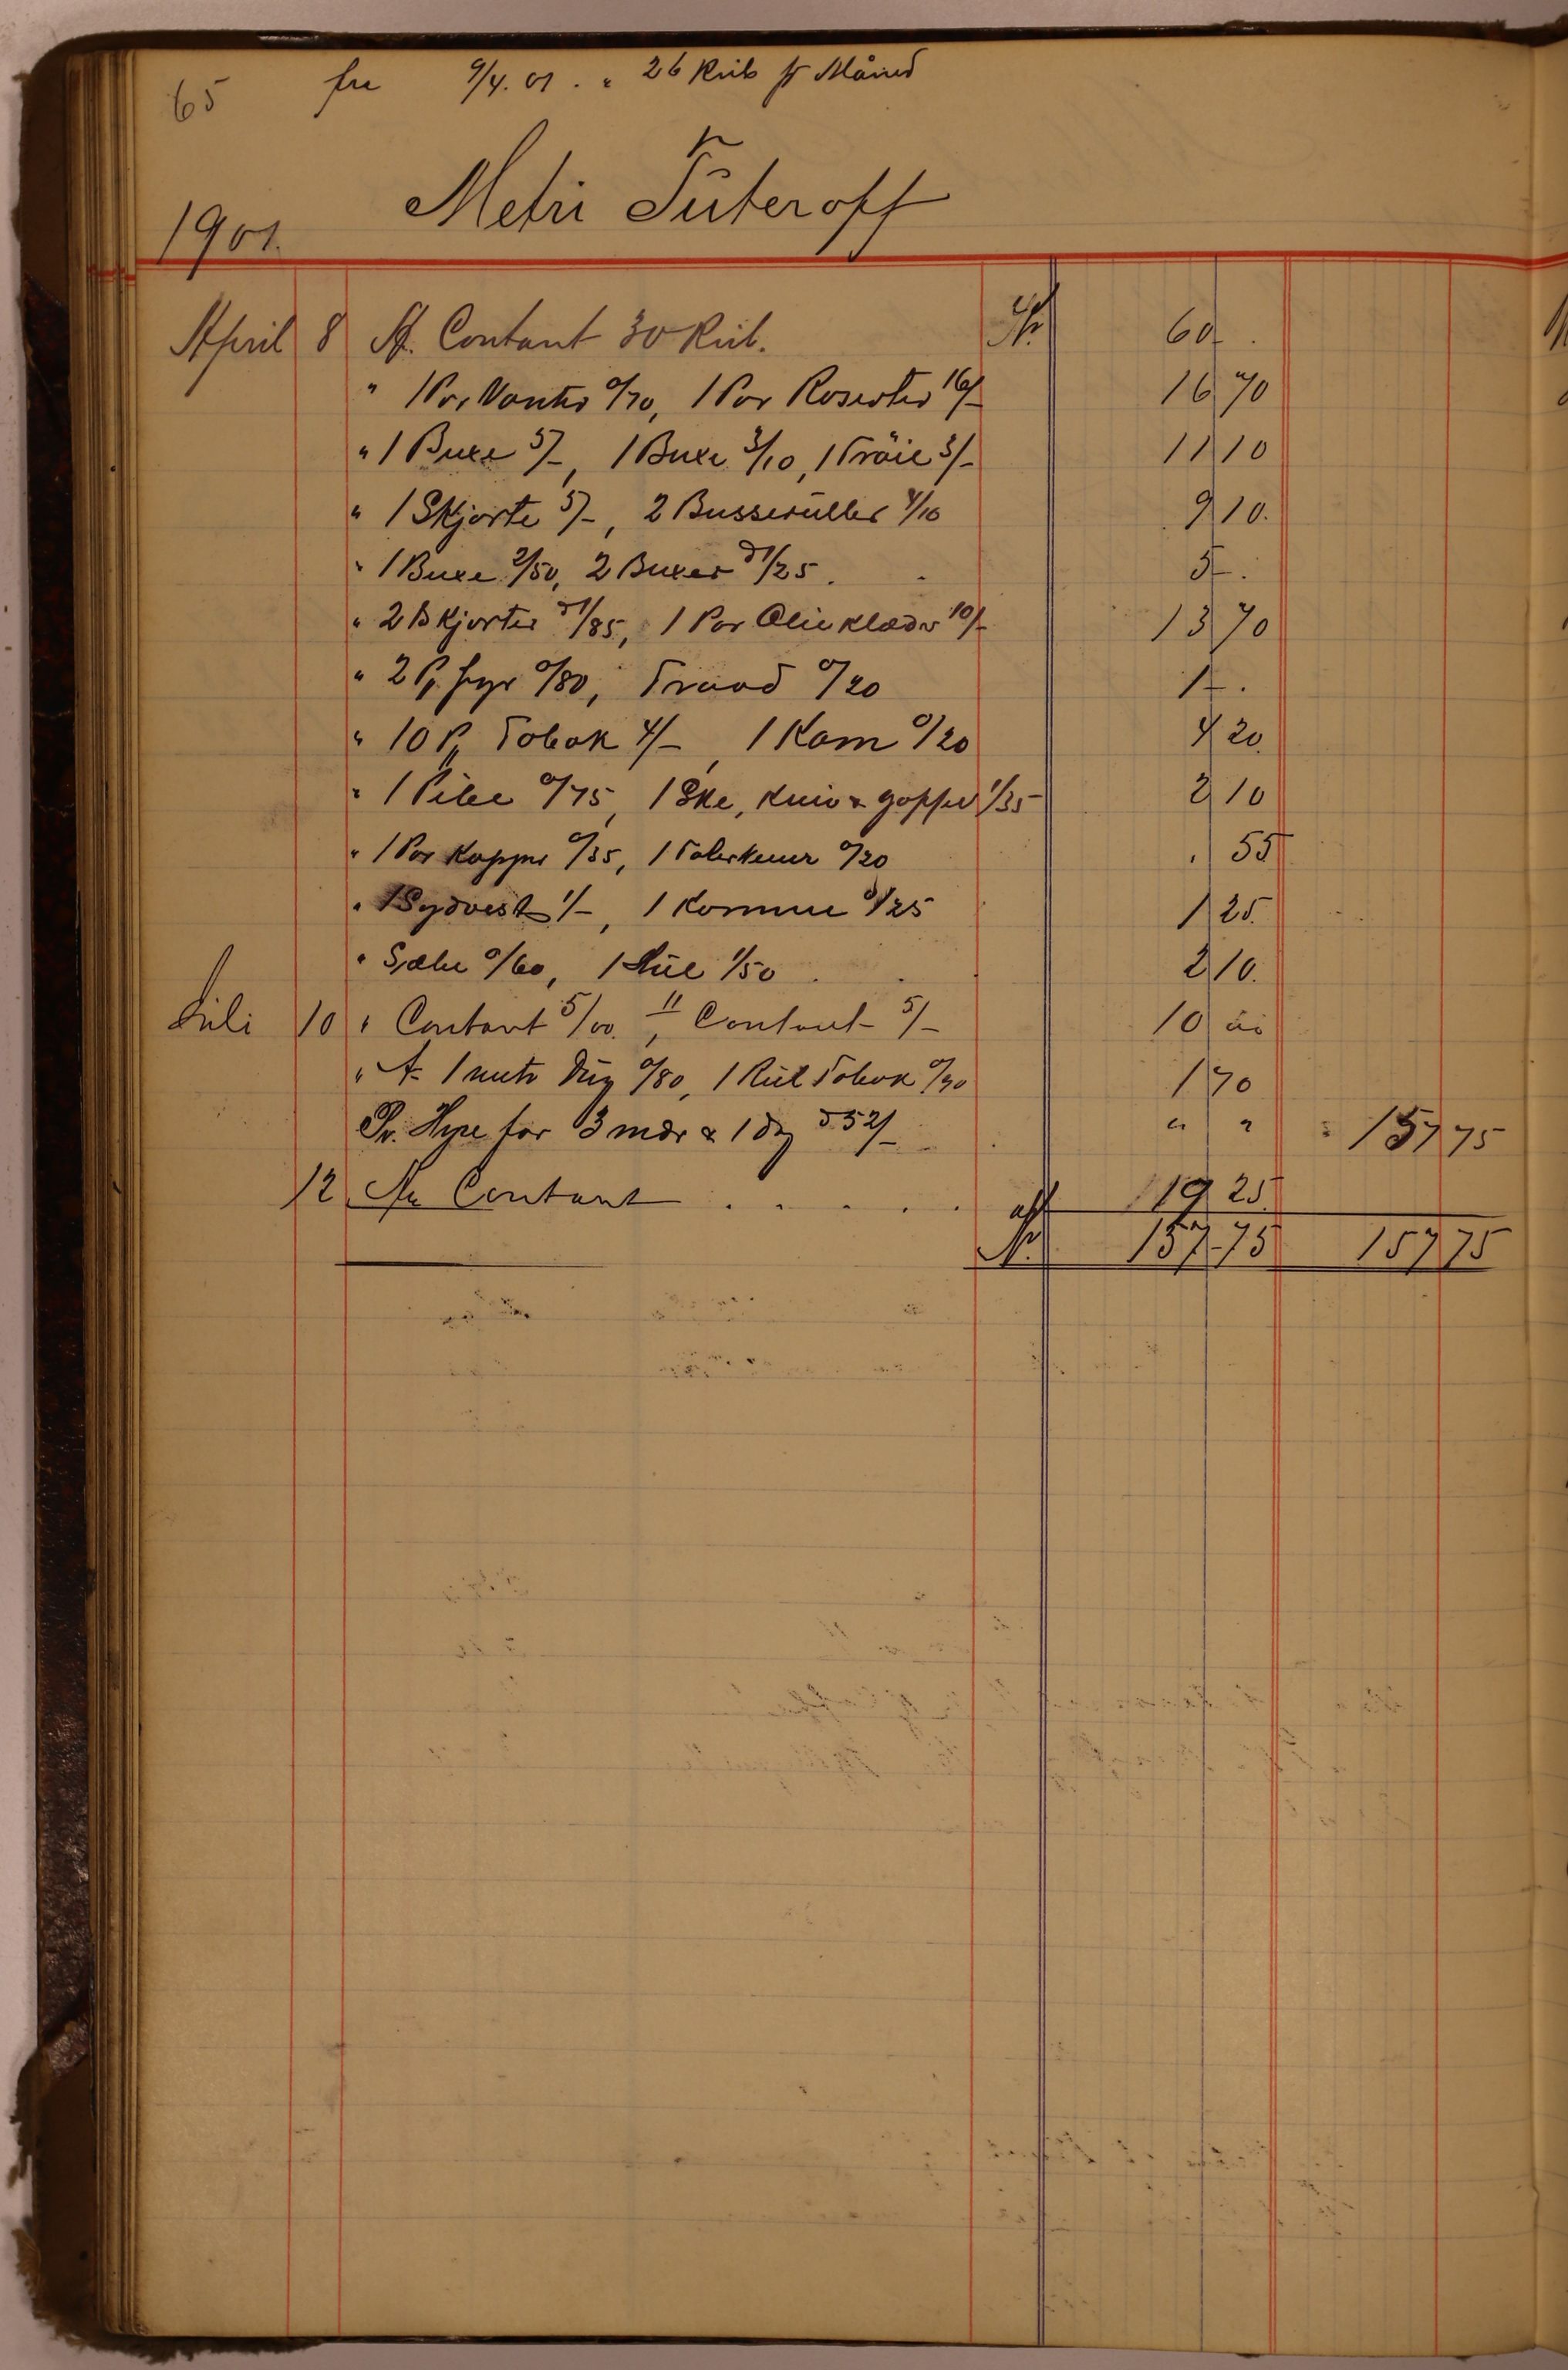 65 fra 9/4.01. " 26 Rub pr Måned
Metri Fûteroff
1901.
April 8 At Contant 30 Rub. Kr. 60 -
" 1 Par Vanter 0/70, 1 Par Røsester 16/- 16 70
" 1 Buxe 5/-, 1 Buxe 3/10, 1 Trøie 3/- 11 10
" 1 Skjorte 5/-, 2 Busseruller 4/10 9 10.
" 1 Buxe 2/50, 2 Buxer à 1/25. 5 -
" 2 Skjorter à 1/85, 1 Par Olieklæder 10/- 13 70
" 2 P. fyr 0/80, Traad 0/20 1 -
" 10 P. Tobak 4/-, 1 Kam 0/20 4 20.
" 1 Pibe 0/75, 1 Ske, Kniv & gaffel 1/35 2 10
" 1 Par Kopper 0/35, 1 Talerkener 0/20 . 55
" 1 Sydvest 1/-, 1 Komme 0/25 1 25.
" Sæbe 0/60, 1 Hue 1/50 2 10.
Juli 10 " Contant 5/00. 11, Contant 5/- 10 00
" At 1 metr Dug 0/80, 1 Rul Tobak 0/90 1 70
Pr. Hyre for 3 mdr & 1 dg à 52/- " " 157 75
12 At Contant . . . . . 19 25.
Kr. 157-75 157 75